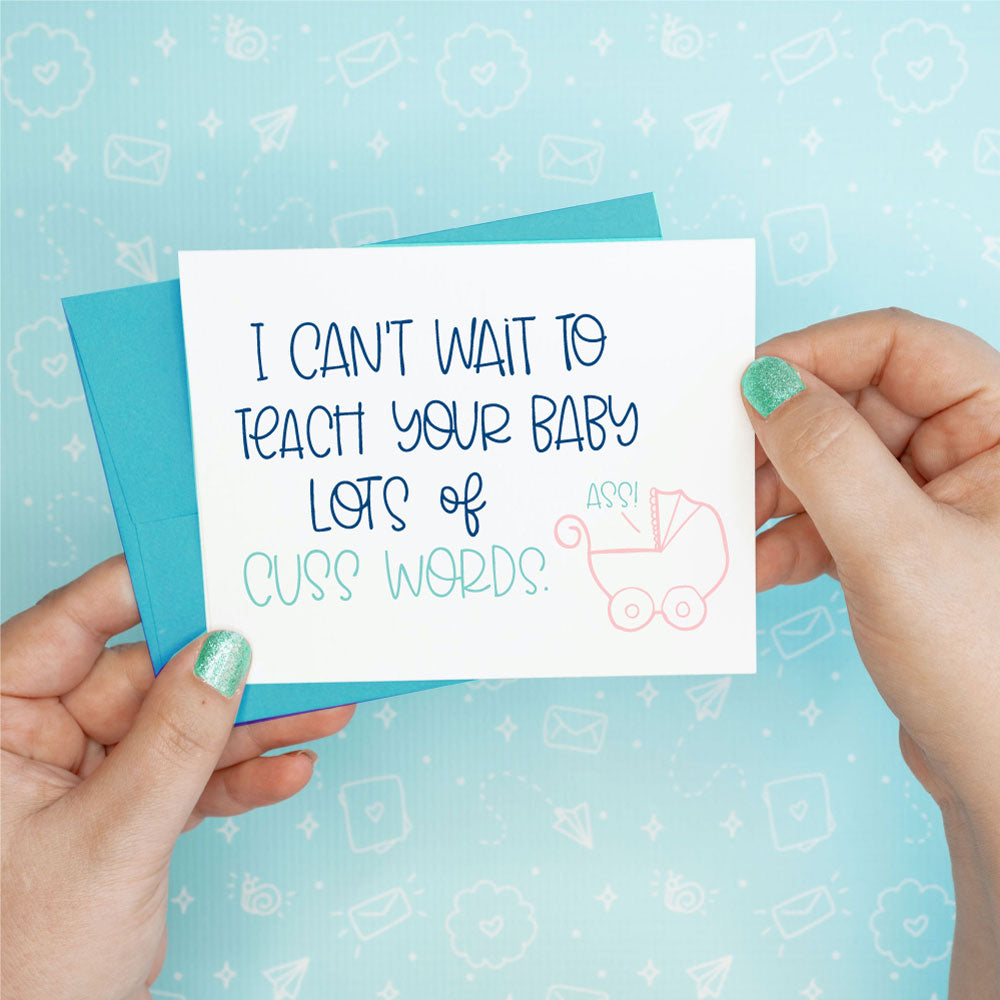 I CAN'T WAIT TO
TEACH YOUR BABY
LOTS of
CUSS WORDS.
ASS!